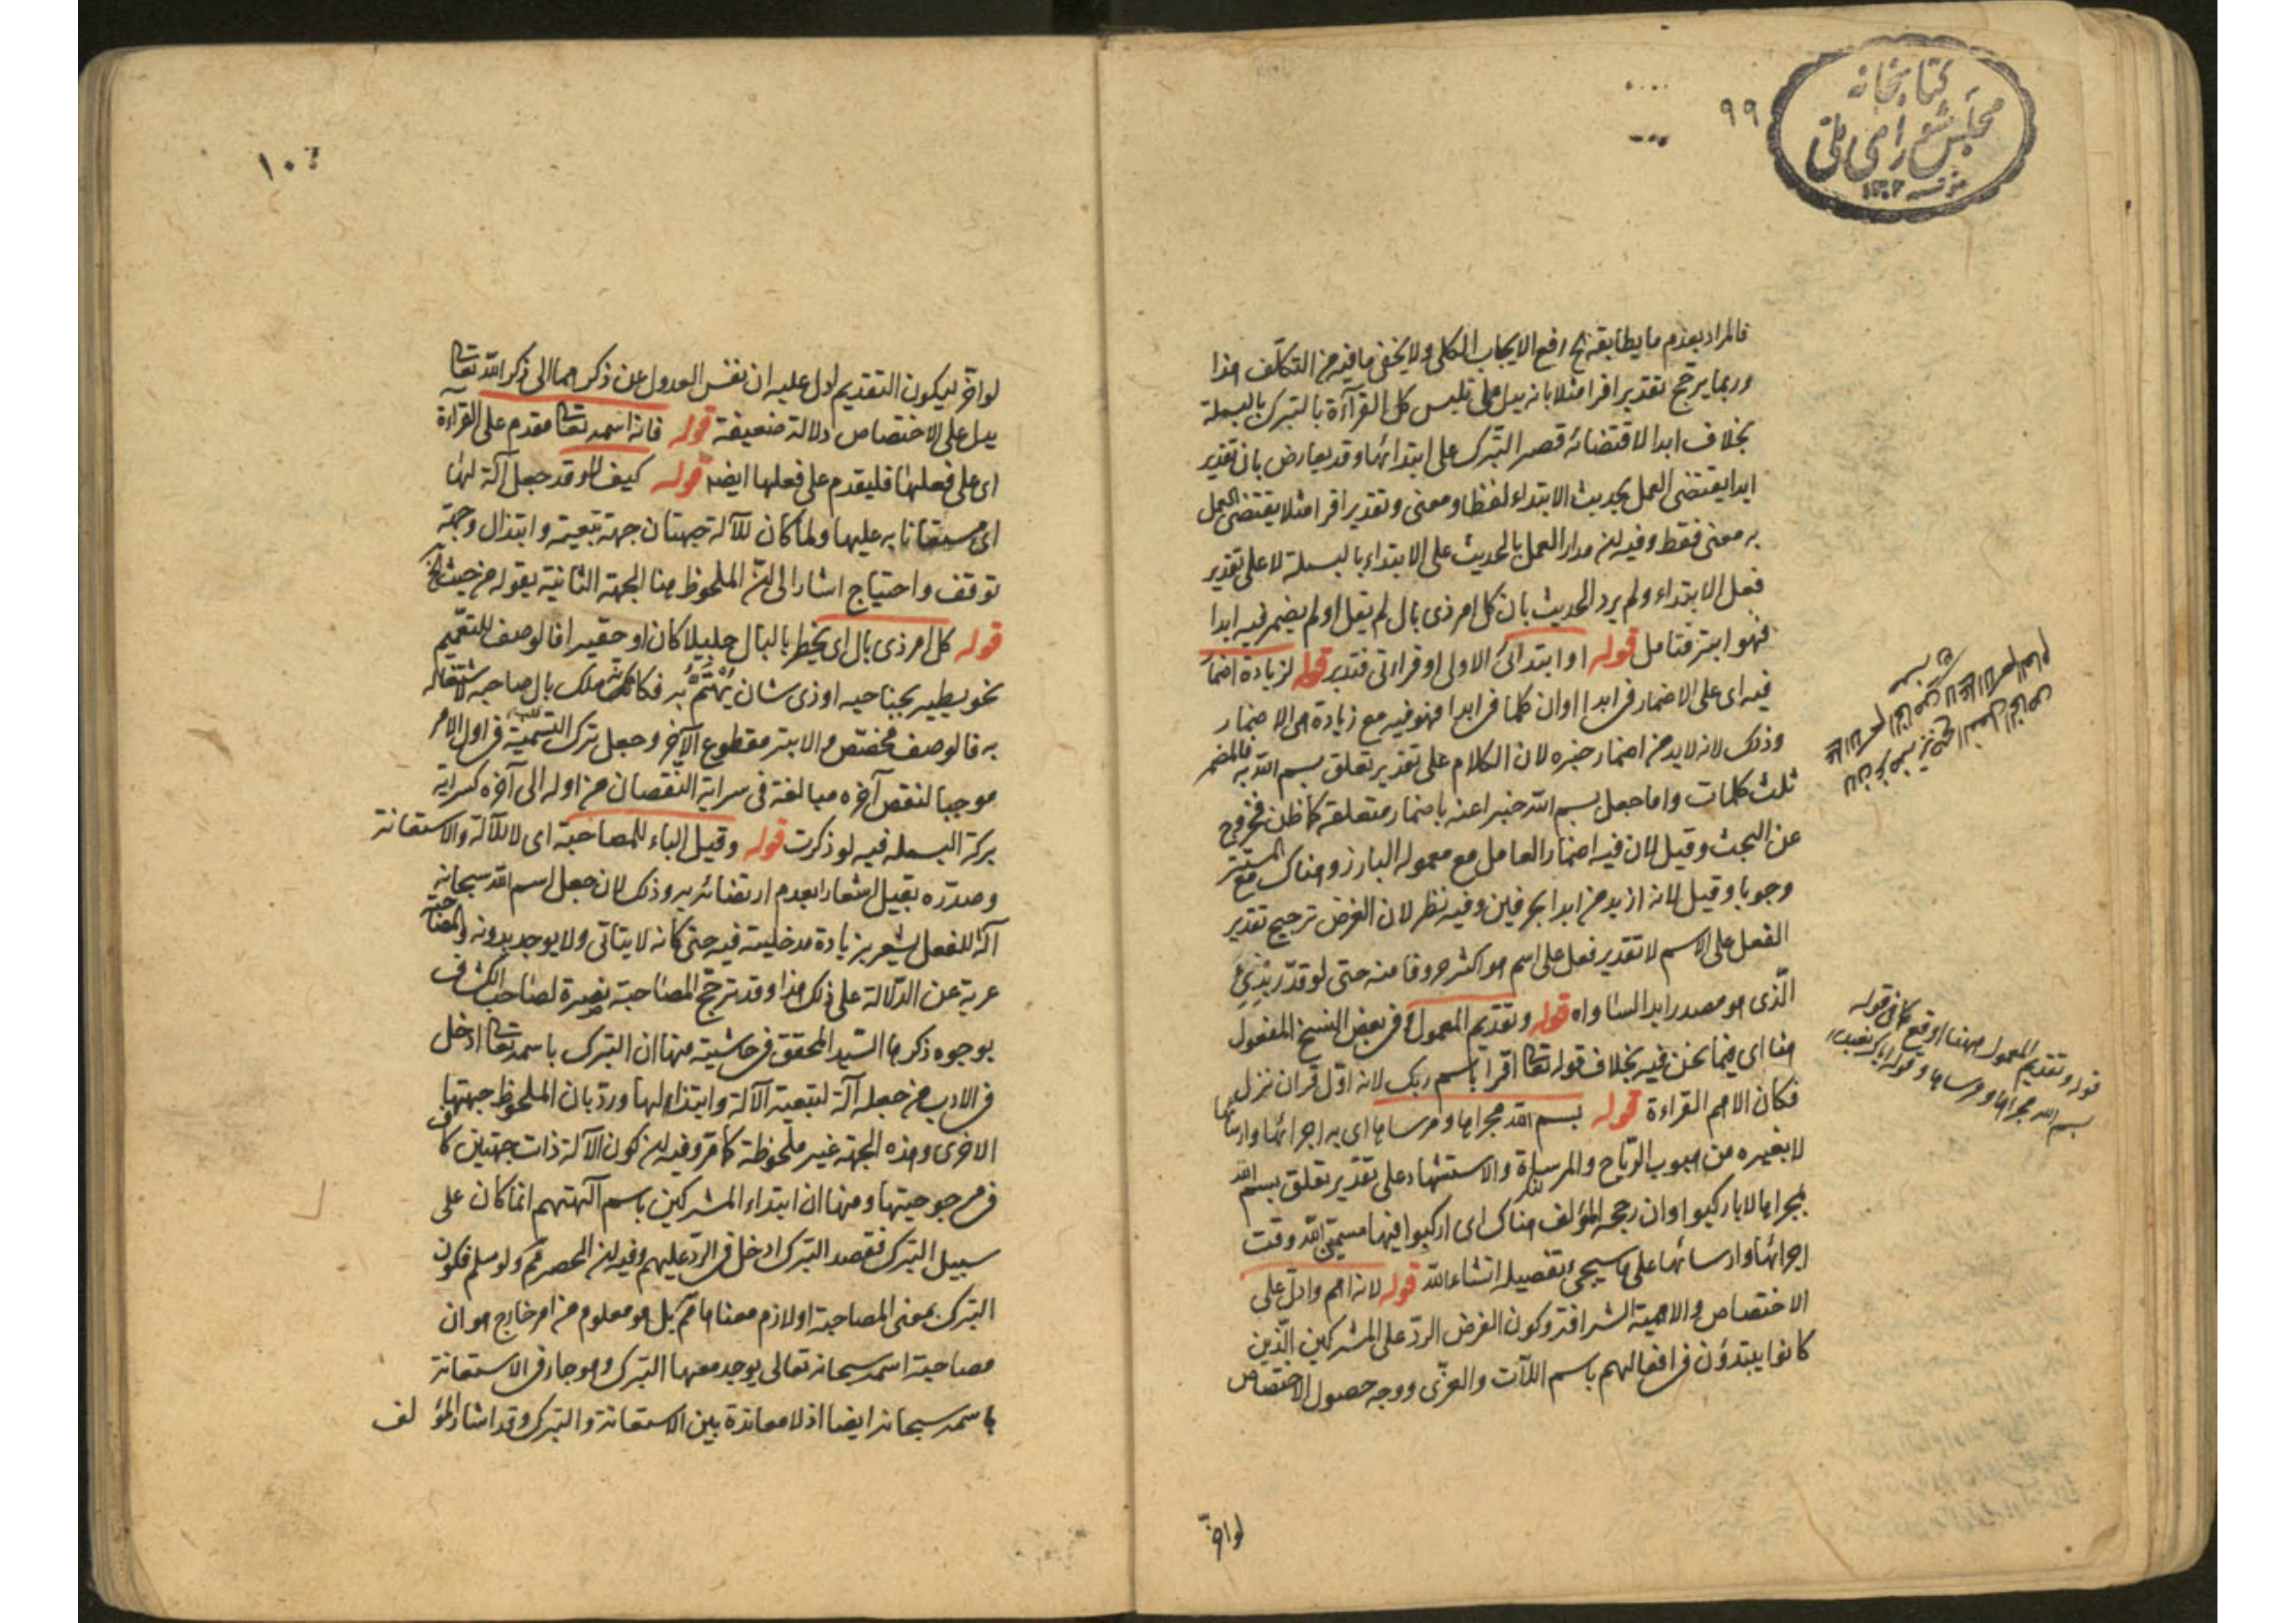 كتابخانه
مجلس شورای ملی
٩٩
فالمراد بعدم ما يطابقه ح رفع الايجاب الكلي ولا يخفى ما فيه من التكلّف هذا
وربما يرجح تقدير اقرا مثلا بانه يدل على تلبس كل القرآءة بالتبرك بالبسملة
بخلاف ابدا لاقتضائه قصر التبرك على ابتدائها وقد يعارض بان تقدير
ابدا يقتضى العمل بحديث الابتداء لفظا ومعنى وتقدير اقرا مثلا يقتضى العمل
به معنى فقط وفيه ان مدار العمل بالحديث على الابتداء بالبسملة لا على تقدير
فعل الابتداء ولم يرد الحديث بان كل امر ذى بال لم يقل او لم يضمر فيه ابدا
فهو ابتر فتامل قوله او ابتدائى الاولى او قراءتى فتدبر قوله لزيادة اضمار
فيه اى على الاضمار فى ابدا اوان كلما فى ابدا فهو فيه مع زيادة اى الاضمار
وذلك لانه لا بد من اضمار خبره لان الكلام على تقدير تعلق بسم الله به فالمضمر
ثلث كلمات واما جعل بسم الله خبرا عنه باضمار متعلقه كما ظن فخروج
عن البحث وقيل لان فيه اضمار العامل مع معموله البارز وهناك مع المستتر
وجوبا وقيل لانه ازيد من ابدا بحرفين وفيه نظر لان الغرض ترجيح تقدير
الفعل على الاسم لا تقدير فعل على اسم هو اكثر حروفا منه حتى لو قدّر
الّذى هو مصدر ابدا لساواه قوله وتقديم المعمول فى بعض النسخ المفعول
هنا اى فيما نحن فيه بخلاف قوله تعا اقرا باسم ربك لانه اوّل قران نزل
فكان الاهم القراءة قوله بسم الله مجراها ومرساها اى به اجرائها وارسائها
لا بغيره من هبوب الرّياح والمرساة والاستشهاد على تقدير تعلق بسم الله
بمجراها لا باركبوا وان رجحه المؤلف هناك اى اركبوا فيها مسمين الله وقت
اجرائها وارسائها على ما سيجئ تفصيله انشاء الله قوله لانه اهم وادلّ على
الاختصاص والاهمية الشرافته وكون الغرض الردّ على المشركين الّذين
كانوا يبتدؤن فى افعالهم باسم اللآت والعزّى ووجه حصول الاختصاص
لو اخّر
قوله وتقديم المعمول ههنا اوقع كما فى قوله
بسم الله مجراها ومرساها وقوله اياك نعبد
١٠٠
لو اخّر ليكون التقديم ادل عليه ان نفس العدول عن ذكر هما الى ذكر الله تعا
يدل على الاختصاص دلالة ضعيفة قوله فانه اسمه تعا مقدم على القراءة
اى على فعلها فليقدم على فعلها ايضا قوله كيف لا وقد جعل آلة لها
اى مستعانا به عليها ولما كان للآلة جهتان جهة تبعية وابتذال وجهة
توقف واحتياج اشار الى ان الملحوظ هنا الجهة الثانية بقوله من حيث الخ
قوله كل امر ذى بال اى يخطر بالبال جليلا كان او حقيرا فالوصف للتعميم
نحو يطير بجناحيه او ذى شان يُهْتَمُّ به فكانه ملك بال صاحبه لاشتغاله
به فالوصف مخصّص والابتر مقطوع الآخر وجعل ترك التسمية فى اول الامر
موجبا لنقص آخره مبالغة فى سراية النقصان من اوله الى آخره كسراية
بركة البسمله فيه لو ذكرت قوله وقيل الباء للمصاحبة اى لا للآلة والاستعانة
وصدّره بقيل اشعارا بعدم ارتضائه به وذلك لان جعل اسم الله سبحانه
آلة للفعل يشعر بزيادة مدخليته فيه حتى كانه لا يتاتى ولا يوجد بدونه والمصاحبة
عرية عن الدّلالة على ذلك هذا وقد ترجّح المصاحبة نصرة لصاحب الكشاف
بوجوه ذكرها السّيد المحقق فى حاشيته منها ان التبرك باسمه تعا ادخل
فى الادب من جعله آلة لتبعية الآلة وابتذالها وردّ بان الملحوظ جهتها
الاخرى وهذه الجهة غير ملحوظة كما مرّ وفيه ان كون الآلة ذات جهتين كاف
فى مرجوحيتها ومنها ان ابتداء المشركين باسم آلهتهم انما كان على
سبيل التبرك فقصد التبرك ادخل فى الردّ عليهم وفيه ان الحصر مم ولو سلم فكون
التبرك بمعنى المصاحبة او لازم معناها مم بل هو معلوم من امر خارج هو ان
مصاحبة اسمه سبحانه تعالى يوجد معها التبرك وهو جار فى الاستعانة
باسمه سبحانه ايضا اذ لا معاندة بين الاستعانة والتبرك وقد اشار المؤلف